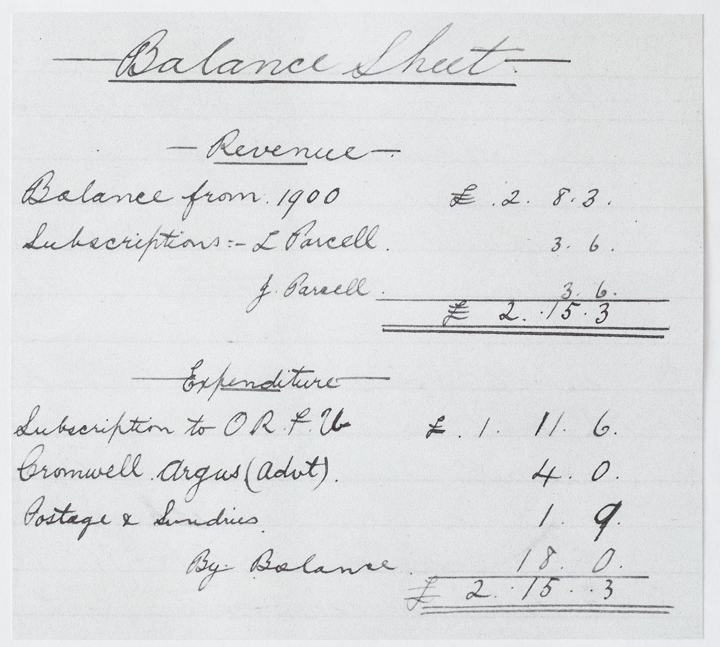 Balance Sheet
Revenue
Balance from 1900 £ 2. 8. 3.
Subscriptions:- L Parcell. 3. 6.
J. Parcell. 3. 6.
£ 2. 15. 3
Expenditure
Subscription to O R F U £. 1. 11. 6.
Cromwell Argus (Advt). 4. 0.
Postage & Sundries. 1. 9.
By Balance. 18. 0.
£ 2. 15. 3